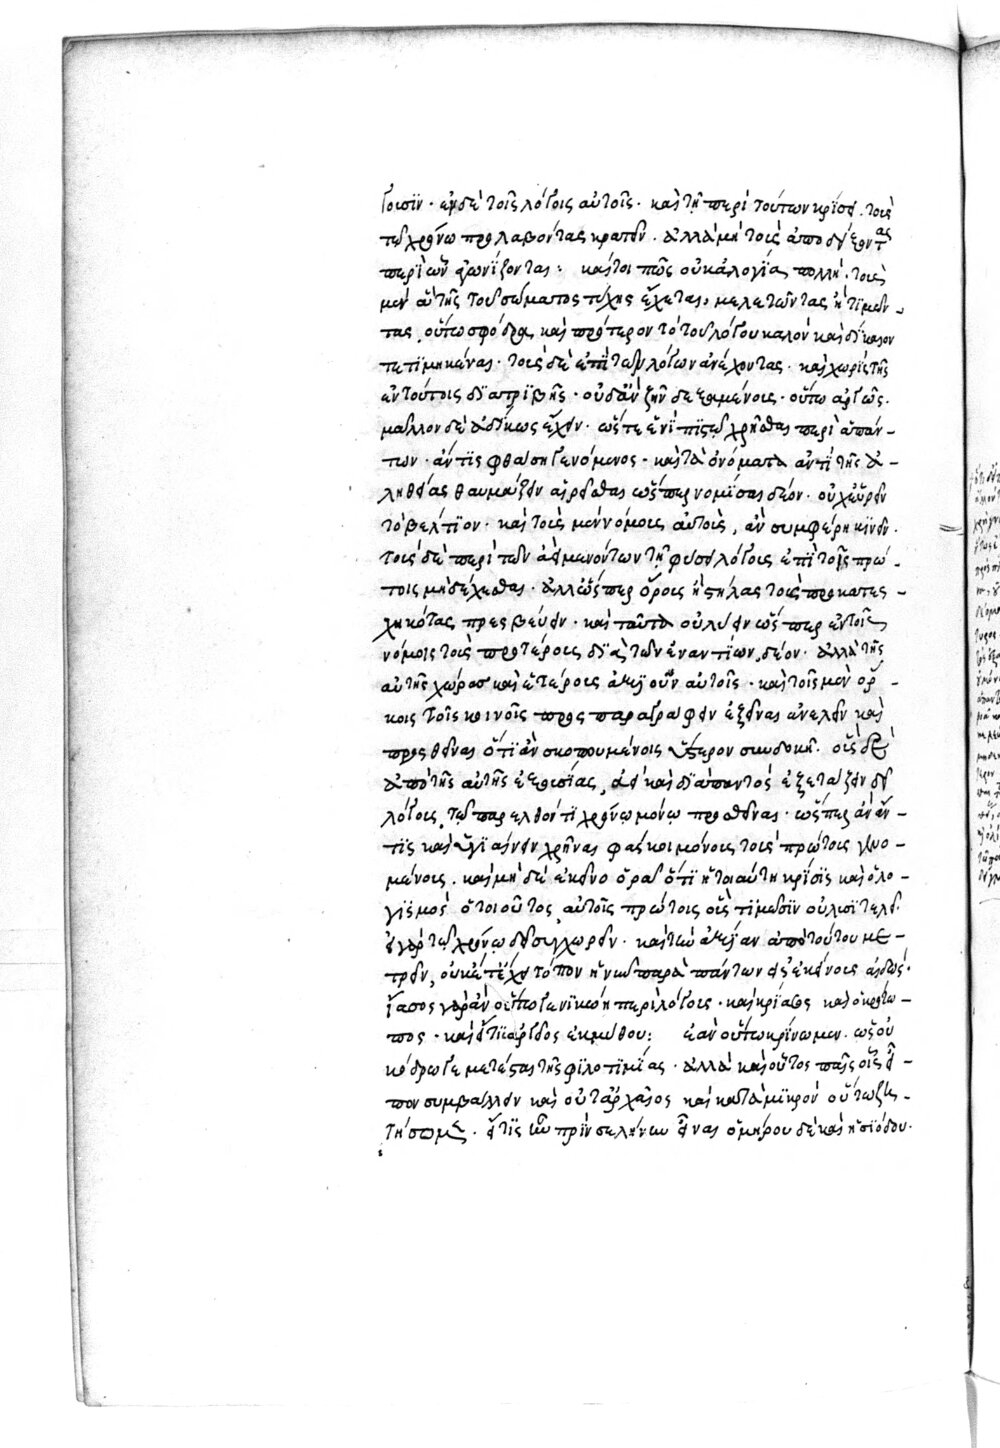 γοισϊν· ἐν δὲ τοῖς λόγοις αὐτοῖς· καὶ τῇ περὶ τούτων κρίσει· τοὺς
τῷ χρόνῳ προλαβόντας κρατεῖν. ἀλλὰ μὴ τοὺς ἀποδεικνύντας
περὶ ὧν ἀγωνίζονται: καίτοι πῶς οὐκ ἀλογία πολλὴ· τοὺς
μὲν αὖ τῆς τοῦ σώματος τύχης ἔχεται, μελετῶντας ἢ τιμῶν-
τας, οὕπω σφόδρα καὶ πρότερον τὸ τοῦ λόγου καλὸν καὶ δίκαιον
τετιμηκέναι· τοὺς δὲ ἐπὶ τῶν λόγων ἀνέχοντας· καὶ χωρὶς τῆς
ἐν τούτοις διατριβῆς· οὐδ' ἂν ζῆν δεξαμένους· οὕτω ἀργῶς.
μᾶλλον δὲ ἀδίκως ἔχειν· ὥστε ἑνί τις τῷ χρῆσθαι περὶ ἁπάν-
των· ἄν τις φθάσῃ γενόμενος· καὶ τὰ ὀνόματα ἀντὶ τῆς ἀ-
ληθείας θαυμάζειν αἱρεῖσθαι ὥσπερ νομίσας δέον· οὐχ εὑρεῖν
τὸ βέλτιον· καὶ τοὺς μὲν νόμους αὐτοὺς, ἂν συμφέρῃ κινεῖν.
τοὺς δὲ περὶ τῶν ἀεὶ μενόντων τῇ φύσει λόγους ἐπὶ τοῖς πρώ-
τοις μὴ δέχεσθαι· ἀλλ' ὥσπερ ὅρους ἢ στήλας τοὺς προκατες-
χηκότας πρεσβεύειν· καὶ ταῦτα οὐ λύειν ὥσπερ ἐν τοῖς
νόμοις τοὺς προτέρους διὰ τῶν ἐναντίων, δέον· ἀλλὰ τῆς
αὐτῆς χώρας καὶ ἑτέροις ἀξιοῦν αὐτοῖς· καὶ τοῖς μὲν ὅρ-
κοις τοῖς κοινοῖς προσπαραγράφειν ἐξεῖναι ἀνελεῖν καὶ
προσθεῖναι ὅτι ἂν σκοπουμένοις ὕστερον συνδοκῇ. οἷς δὲ
ἀπὸ τῆς αὐτῆς ἐξουσίας, ἀεὶ καὶ διαπαντὸς ἐξετάζειν δεῖ
λόγοις, τῷ παρελθόντι χρόνῳ μόνῳ προσθεῖναι· ὥσπερ ἂν εἴ
τις καὶ ὑγιαίνειν χρῆναι φάσκοι μόνους τοὺς πρώτους γενο-
μένους. καὶ μηδὲ ἐκεῖνο ὁρᾷ ὅτι ἡ τοιαύτη κρίσις καὶ ὁ λο-
γισμὸς ὁ τοιοῦτος, αὐτοῖς πρώτοις οἷς τιμῶσιν οὐ λυσιτελεῖ.
εἰ γὰρ τῷ χρόνῳ δεῖ συγχωρεῖν· καὶ τὴν ἀξίαν ἀπὸ τούτου με-
τρεῖν, οὐκ ἂν ἔχοι τόπον ἡ νῦν παρὰ πάντων εἰς ἐκείνους αἰδώς·
ἴασος γὰρ ἂν οὕτω γε νικῴη περὶ λόγους· καὶ κρίασος καὶ ὁ κρότω-
πος· καὶ εἴ τις ἀρχαῖος ἐκ μύθου: ἐὰν οὕτω κρίνωμεν. ὥστ' οὐ
κόδρῳ γε μέτεστι τῆς φιλοτιμίας· ἀλλὰ καὶ οὗτος παῖς οἷς εἶ-
πον συμβάλλειν καὶ οὔτ' ἀρχαῖος καὶ κατὰ μικρὸν οὕτω ζη-
τήσομεν· εἴ τις ἦν πρὶν σελήνην εἶναι ὁμήρου δὲ καὶ ἡσιόδου·